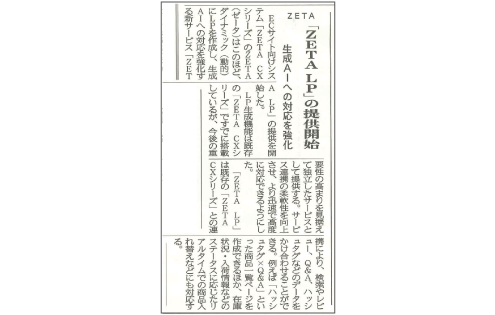 ZETA
「ZETA LP」の提供開始
生成AIへの対応を強化
ECサイト向けシス
テム「ZETA CX
シリーズ」のZETA
(ゼータ)はこのほど、
ダイナミック(動的)
にLPを作成し、生成
AIへの対応を強化す
る新サービス「ZET
A LP」の提供を開
始した。
LP生成機能は既存
の「ZETA CXシ
リーズ」ですでに搭載
しているが、今後の重
要性の高まりを見据え
て独立したサービスと
して提供する。サービ
ス連携の柔軟性を向上
させ、より迅速で高度
に対応できるようにし
た。
「ZETA LP」
は既存の「ZETA
CXシリーズ」との連
携により、検索やレビ
ュー、Q&A、ハッシ
ュタグなどのデータを
かけ合わせることがで
きる。例えば「ハッシ
ュタグ×Q&A」とい
った商品一覧ページを
作成できるほか、在庫
状況・入荷情報などの
ステータスに応じたリ
アルタイムでの商品入
れ替えなどにも対応す
る。